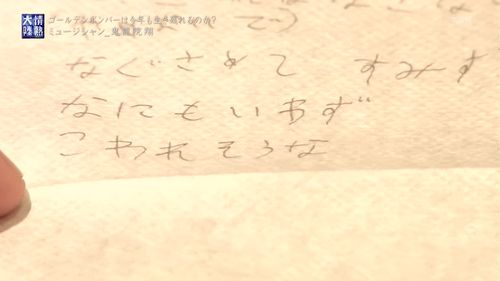 情熱大陸
ゴールデンボンバーは今年も生き残れるのか?
ミュージシャン_鬼龍院翔
なぐさめて すみす
なにもいわず
こわれそうな